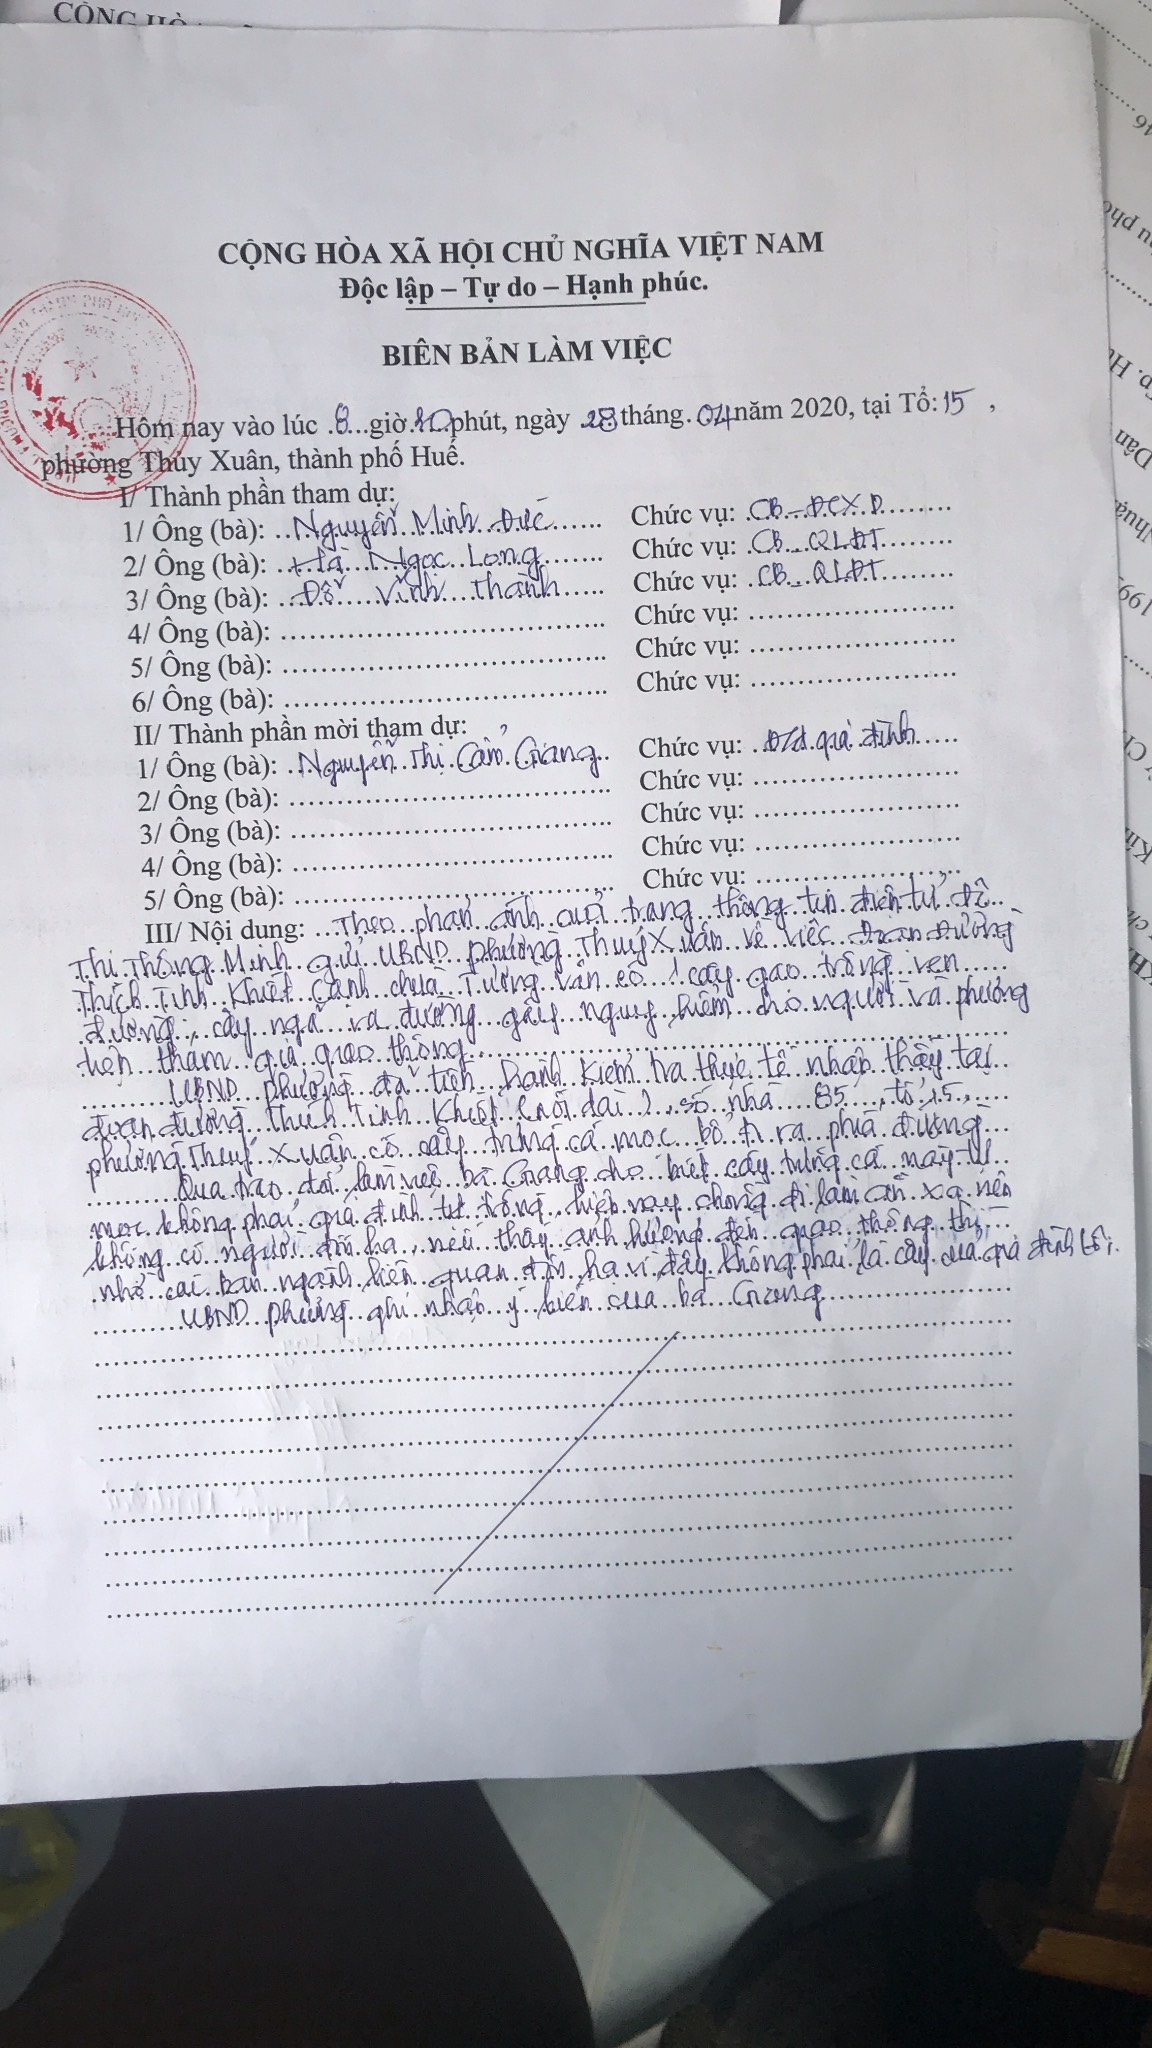 CỘNG HÒA XÃ HỘI CHỦ NGHĨA VIỆT NAM
Độc lập – Tự do – Hạnh phúc.
BIÊN BẢN LÀM VIỆC
Hôm nay vào lúc 8 giờ phút, ngày 28 tháng 04 năm 2020, tại Tổ: 15 ,
phường Thủy Xuân, thành phố Huế.
I/ Thành phần tham dự:
1/ Ông (bà): Nguyễn Minh Đức Chức vụ: CB-ĐCXD
2/ Ông (bà): Hà Ngọc Long Chức vụ: CB QLĐT
3/ Ông (bà): Đỗ Vĩnh Thành Chức vụ: CB QLĐT
4/ Ông (bà): Chức vụ:
5/ Ông (bà): Chức vụ:
6/ Ông (bà): Chức vụ:
II/ Thành phần mời tham dự:
1/ Ông (bà): Nguyễn Thị Cẩm Giang Chức vụ: gia đình
2/ Ông (bà): Chức vụ:
3/ Ông (bà): Chức vụ:
4/ Ông (bà): Chức vụ:
5/ Ông (bà): Chức vụ:
III/ Nội dung: Theo phản ánh của trang thông tin điện tử đô
Thị Thông Minh gửi UBND phường Thuỷ Xuân về việc Đoạn Đường
Thích Tịnh Khiết cạnh chùa Tường Vân có 1 cây gạo trồng ven
đường, cây ngã ra đường gây nguy hiểm cho người và phương
tiện tham gia giao thông
UBND phường đã tiến hành kiểm tra thực tế nhận thấy tại
đoạn đường Thích Tịnh Khiết (nối dài), số nhà 85, tổ 15,
phường Thuỷ Xuân có cây trứng cá mọc bổ đi ra phía đường
Qua trao đổi làm việc bà Giang cho biết cây trứng cá này tự
mọc không phải gia đình tự trồng, hiện nay chồng đi làm ăn xa nên
không có người đốn hạ, nếu thấy ảnh hưởng đến giao thông thì
nhờ các ban ngành liên quan đốn hạ vì đây không phải là cây của gia đình tôi.
UBND phường ghi nhận ý kiến của bà Giang